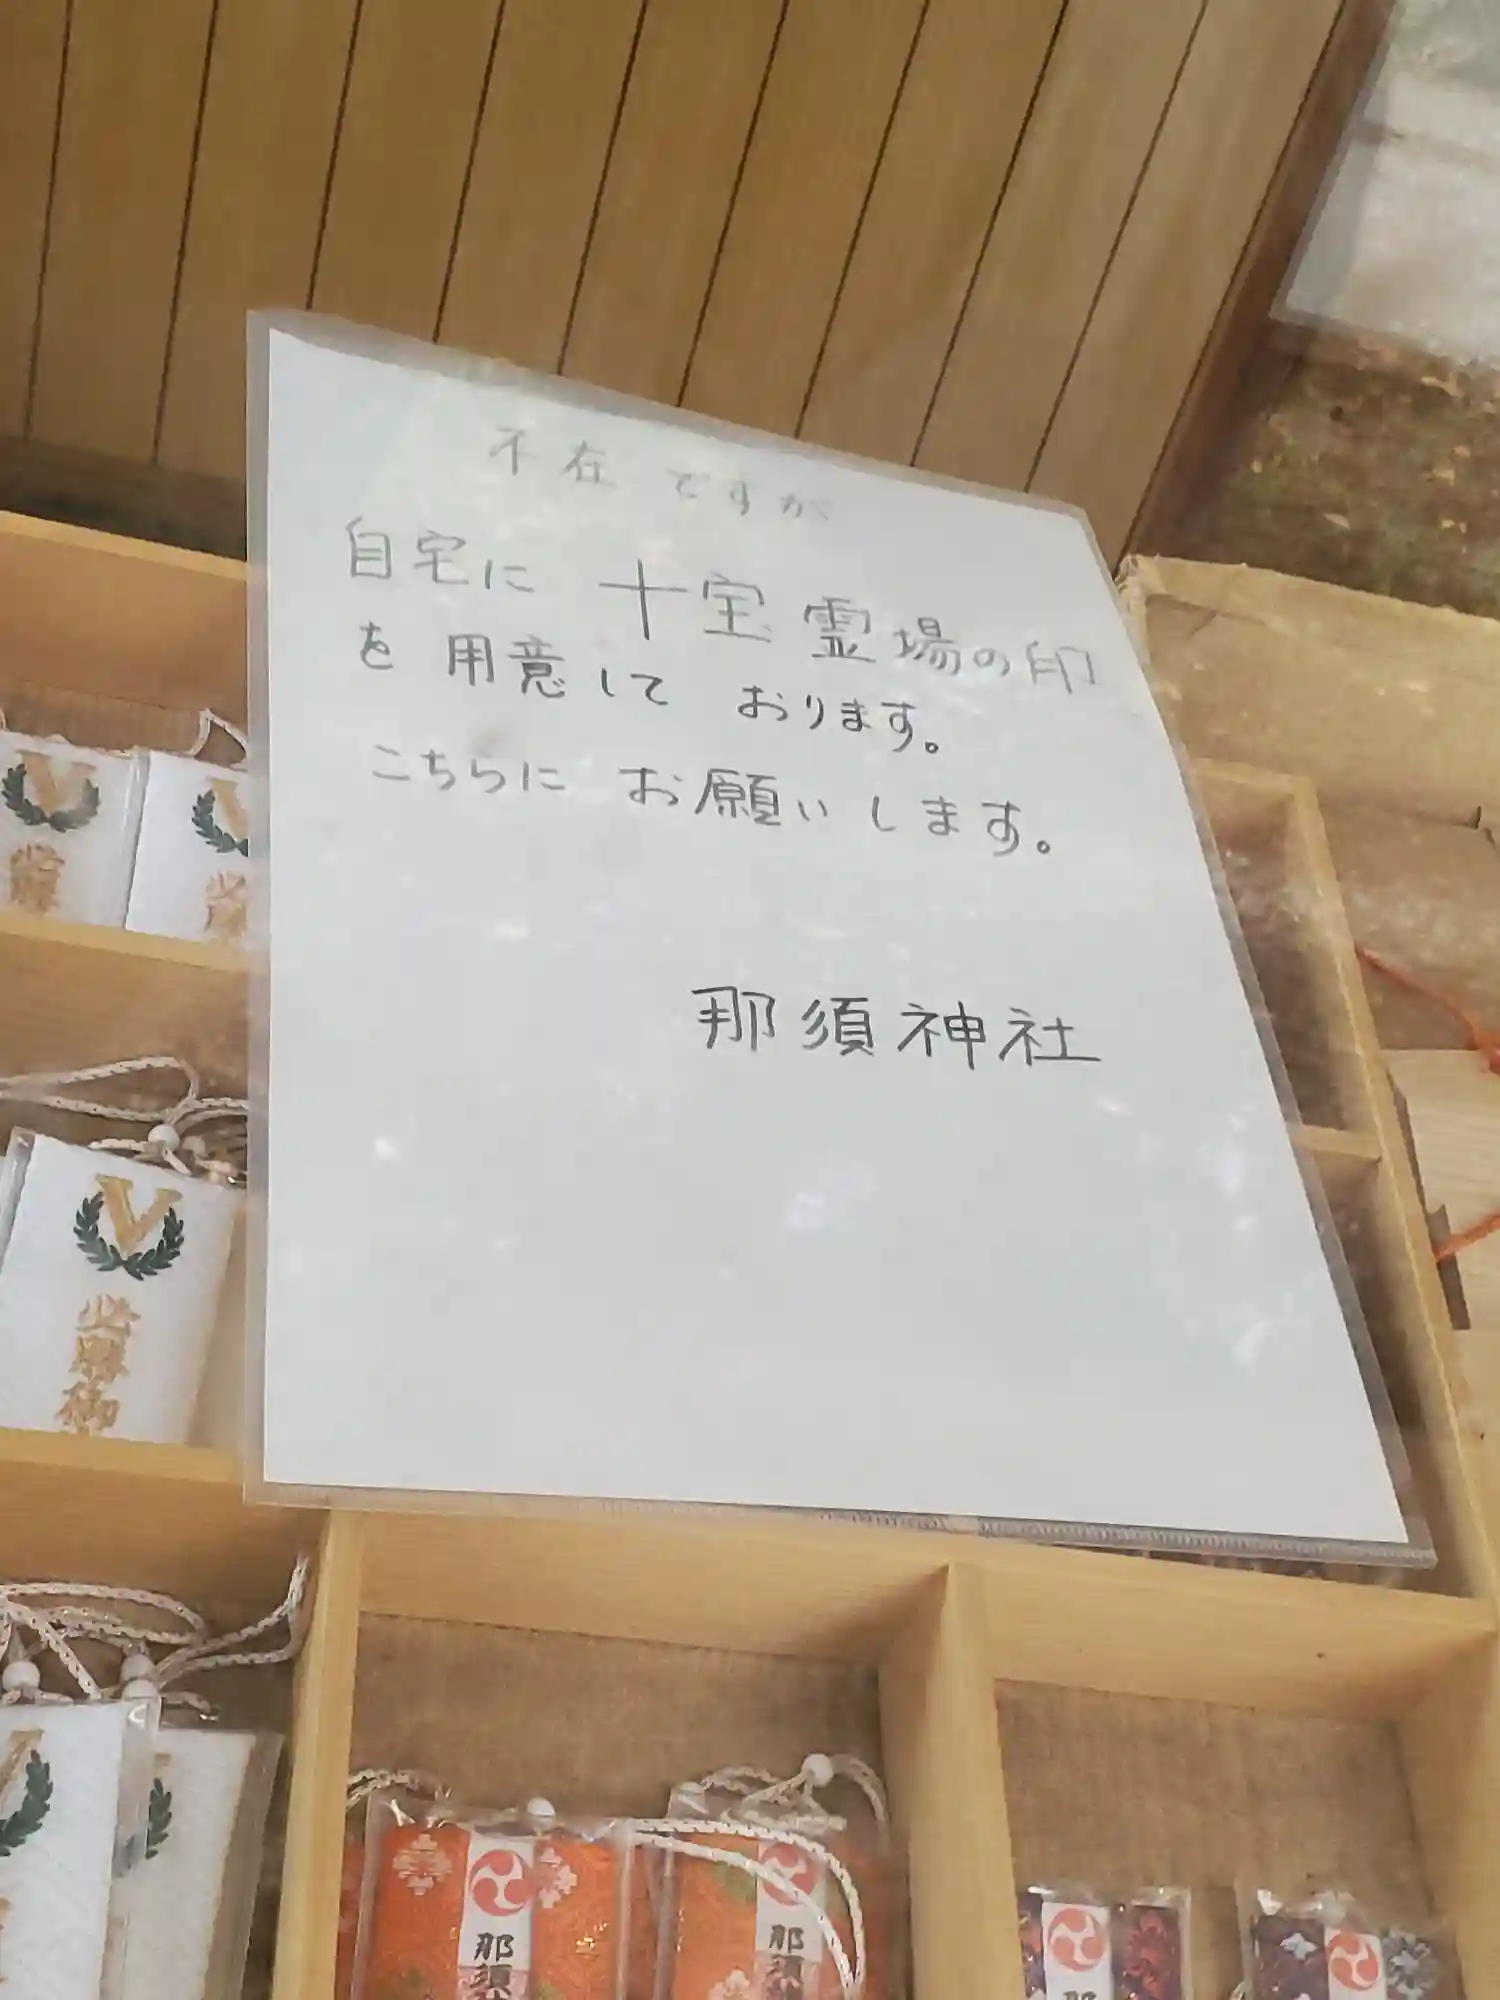 不在ですが
自宅に 十宝霊場の印
を用意しております。
こちらに お願いします。
那須神社
V
必勝
V
必
V
必勝御
那須
那須
那